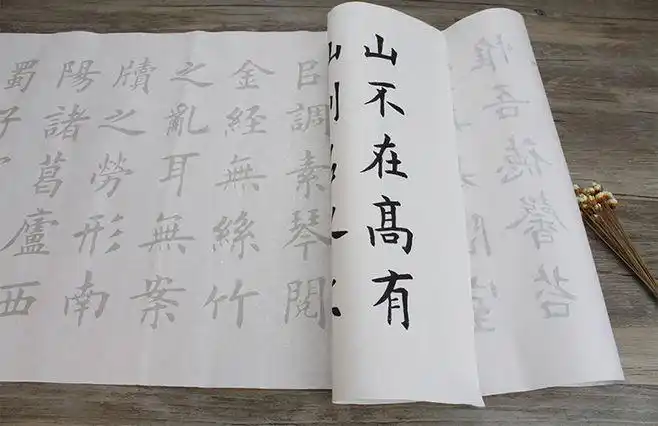 惟吾德馨苔
室
山不在髙有
㠯調素琴閱
金經無絲竹
之亂耳無案
牘之勞形南
陽諸葛廬西
蜀子